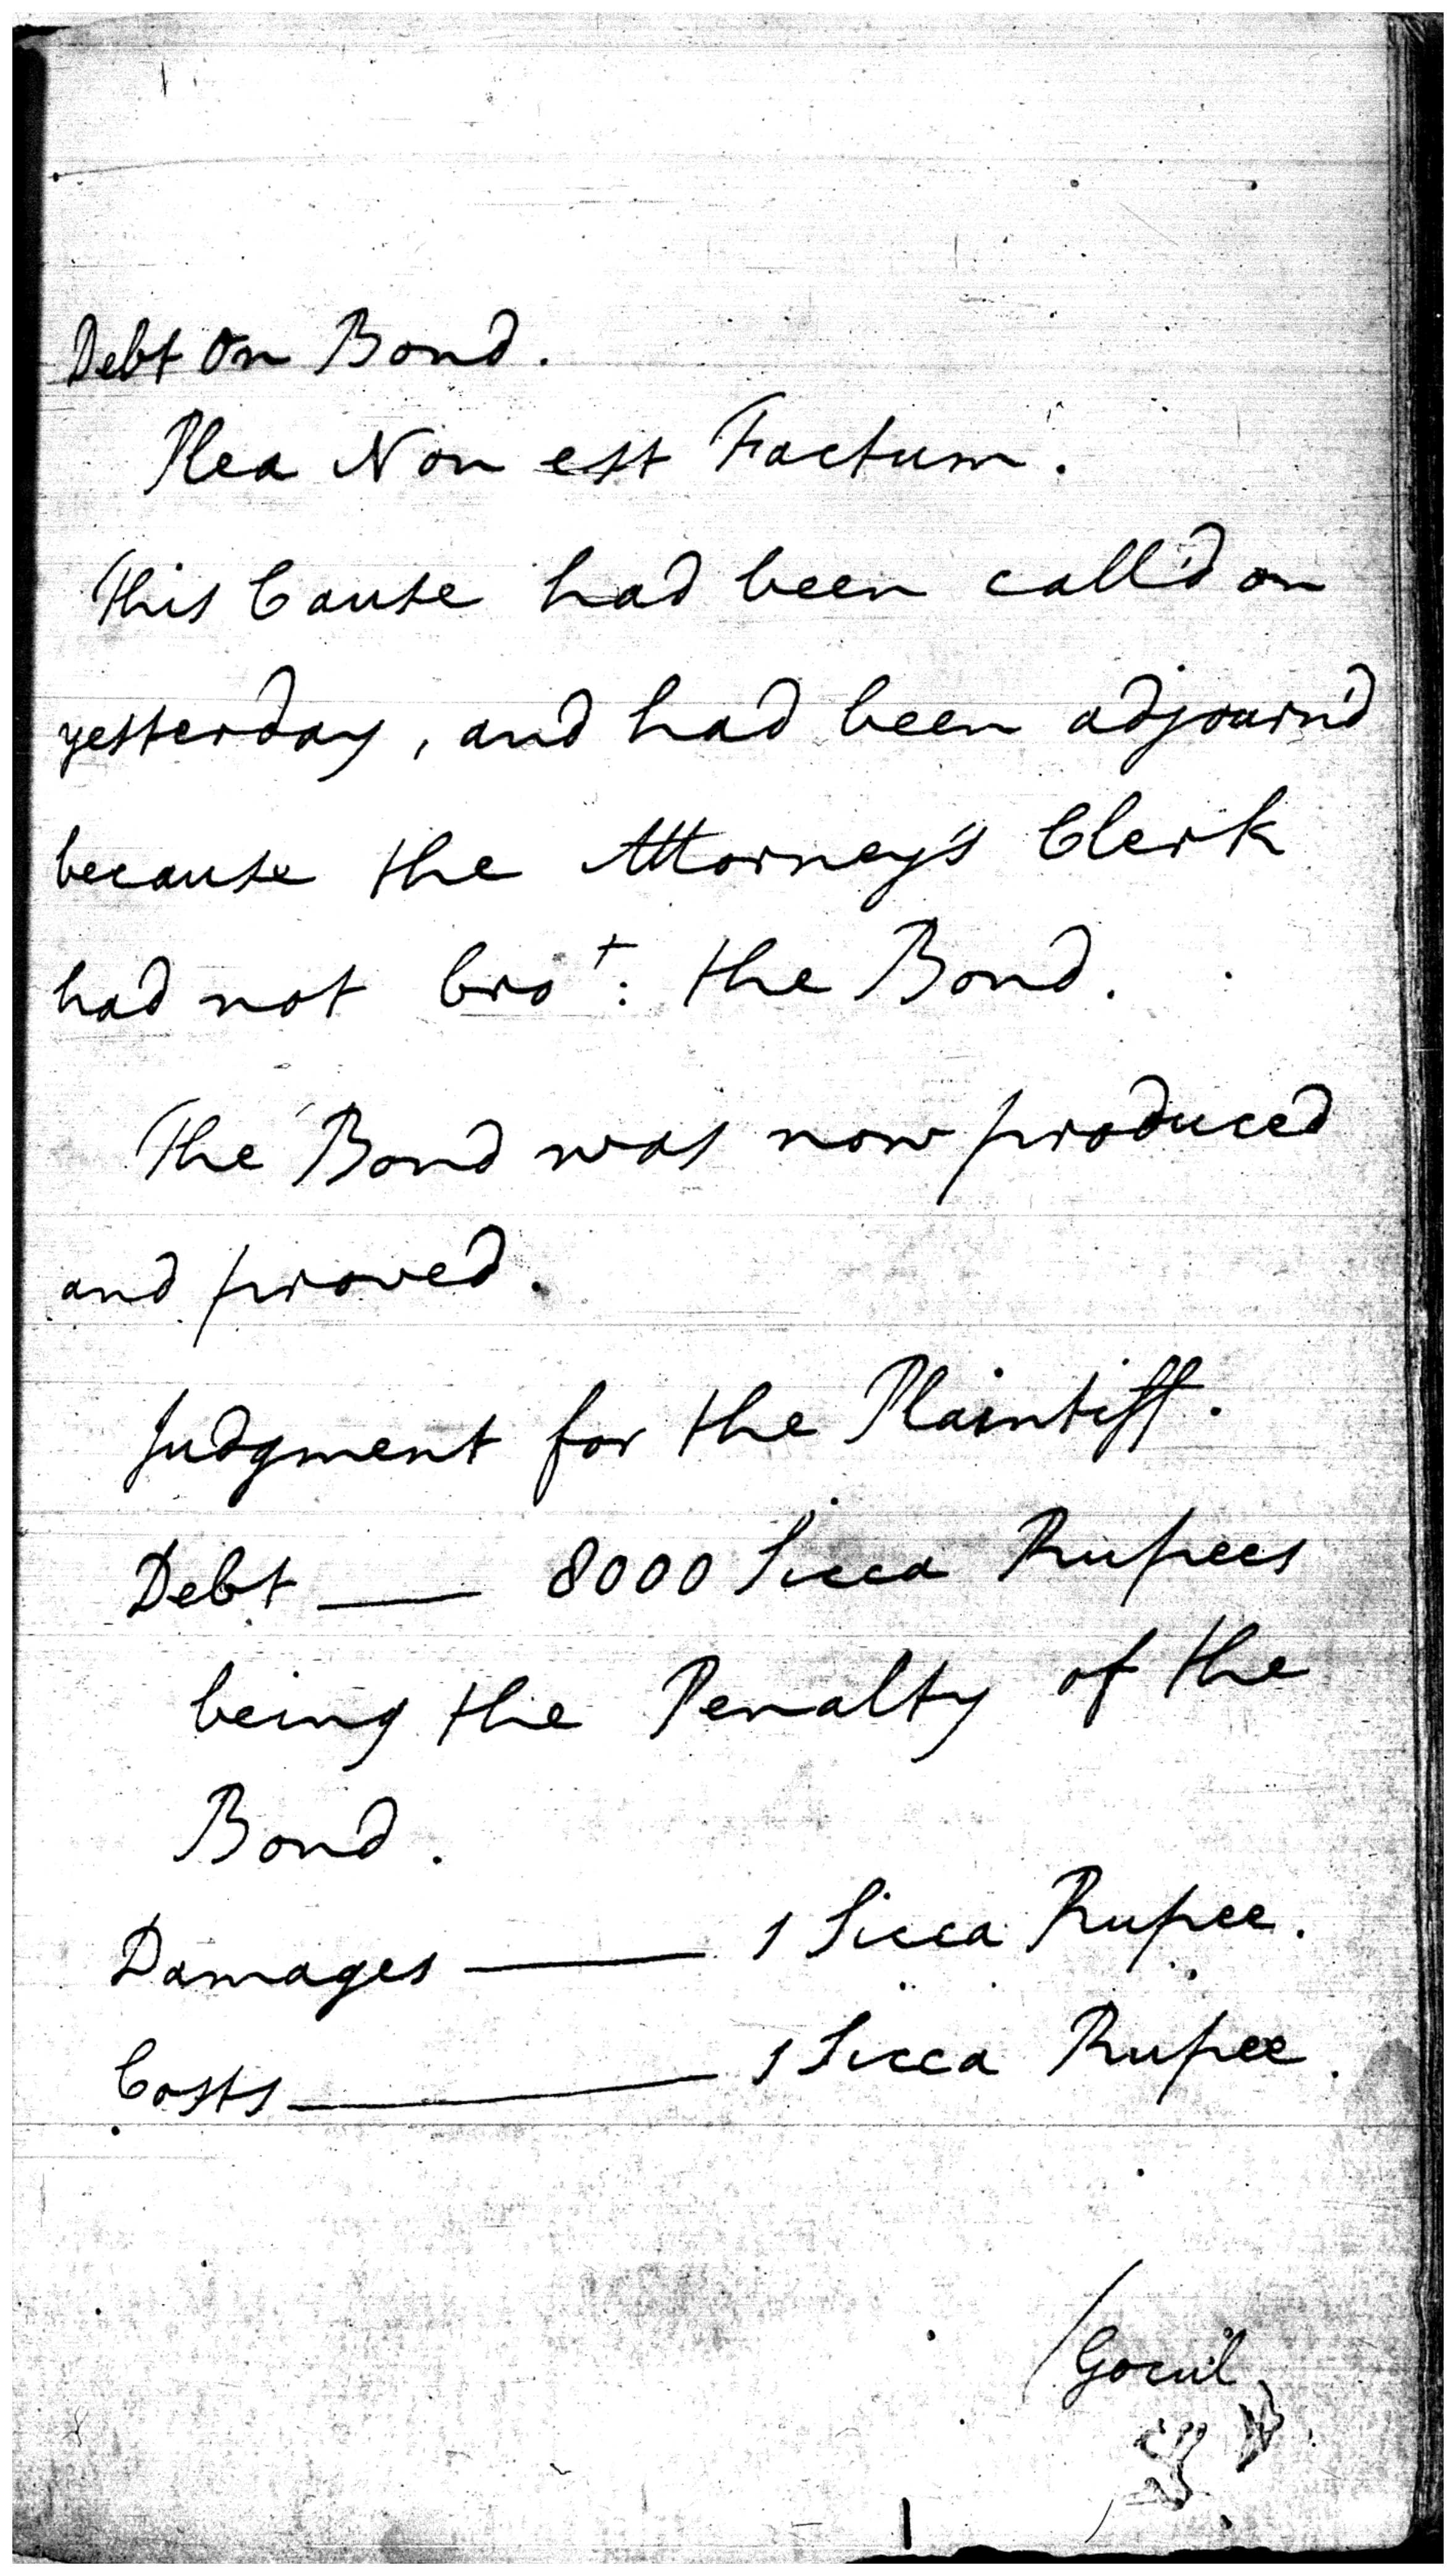 Debt On Bond.
Plea Non est Factum.
This Cause had been call'd on
yesterday, and had been adjourn'd
because the Attorney's Clerk
had not bro^t: the Bond.
The Bond was now produced
and proved.
Judgment for the Plaintiff.
Debt — 8000 Sicca Rupees
being the Penalty of the
Bond.
Damages — 1 Sicca Rupee.
Costs — 1 Sicca Rupee.
/Gocul